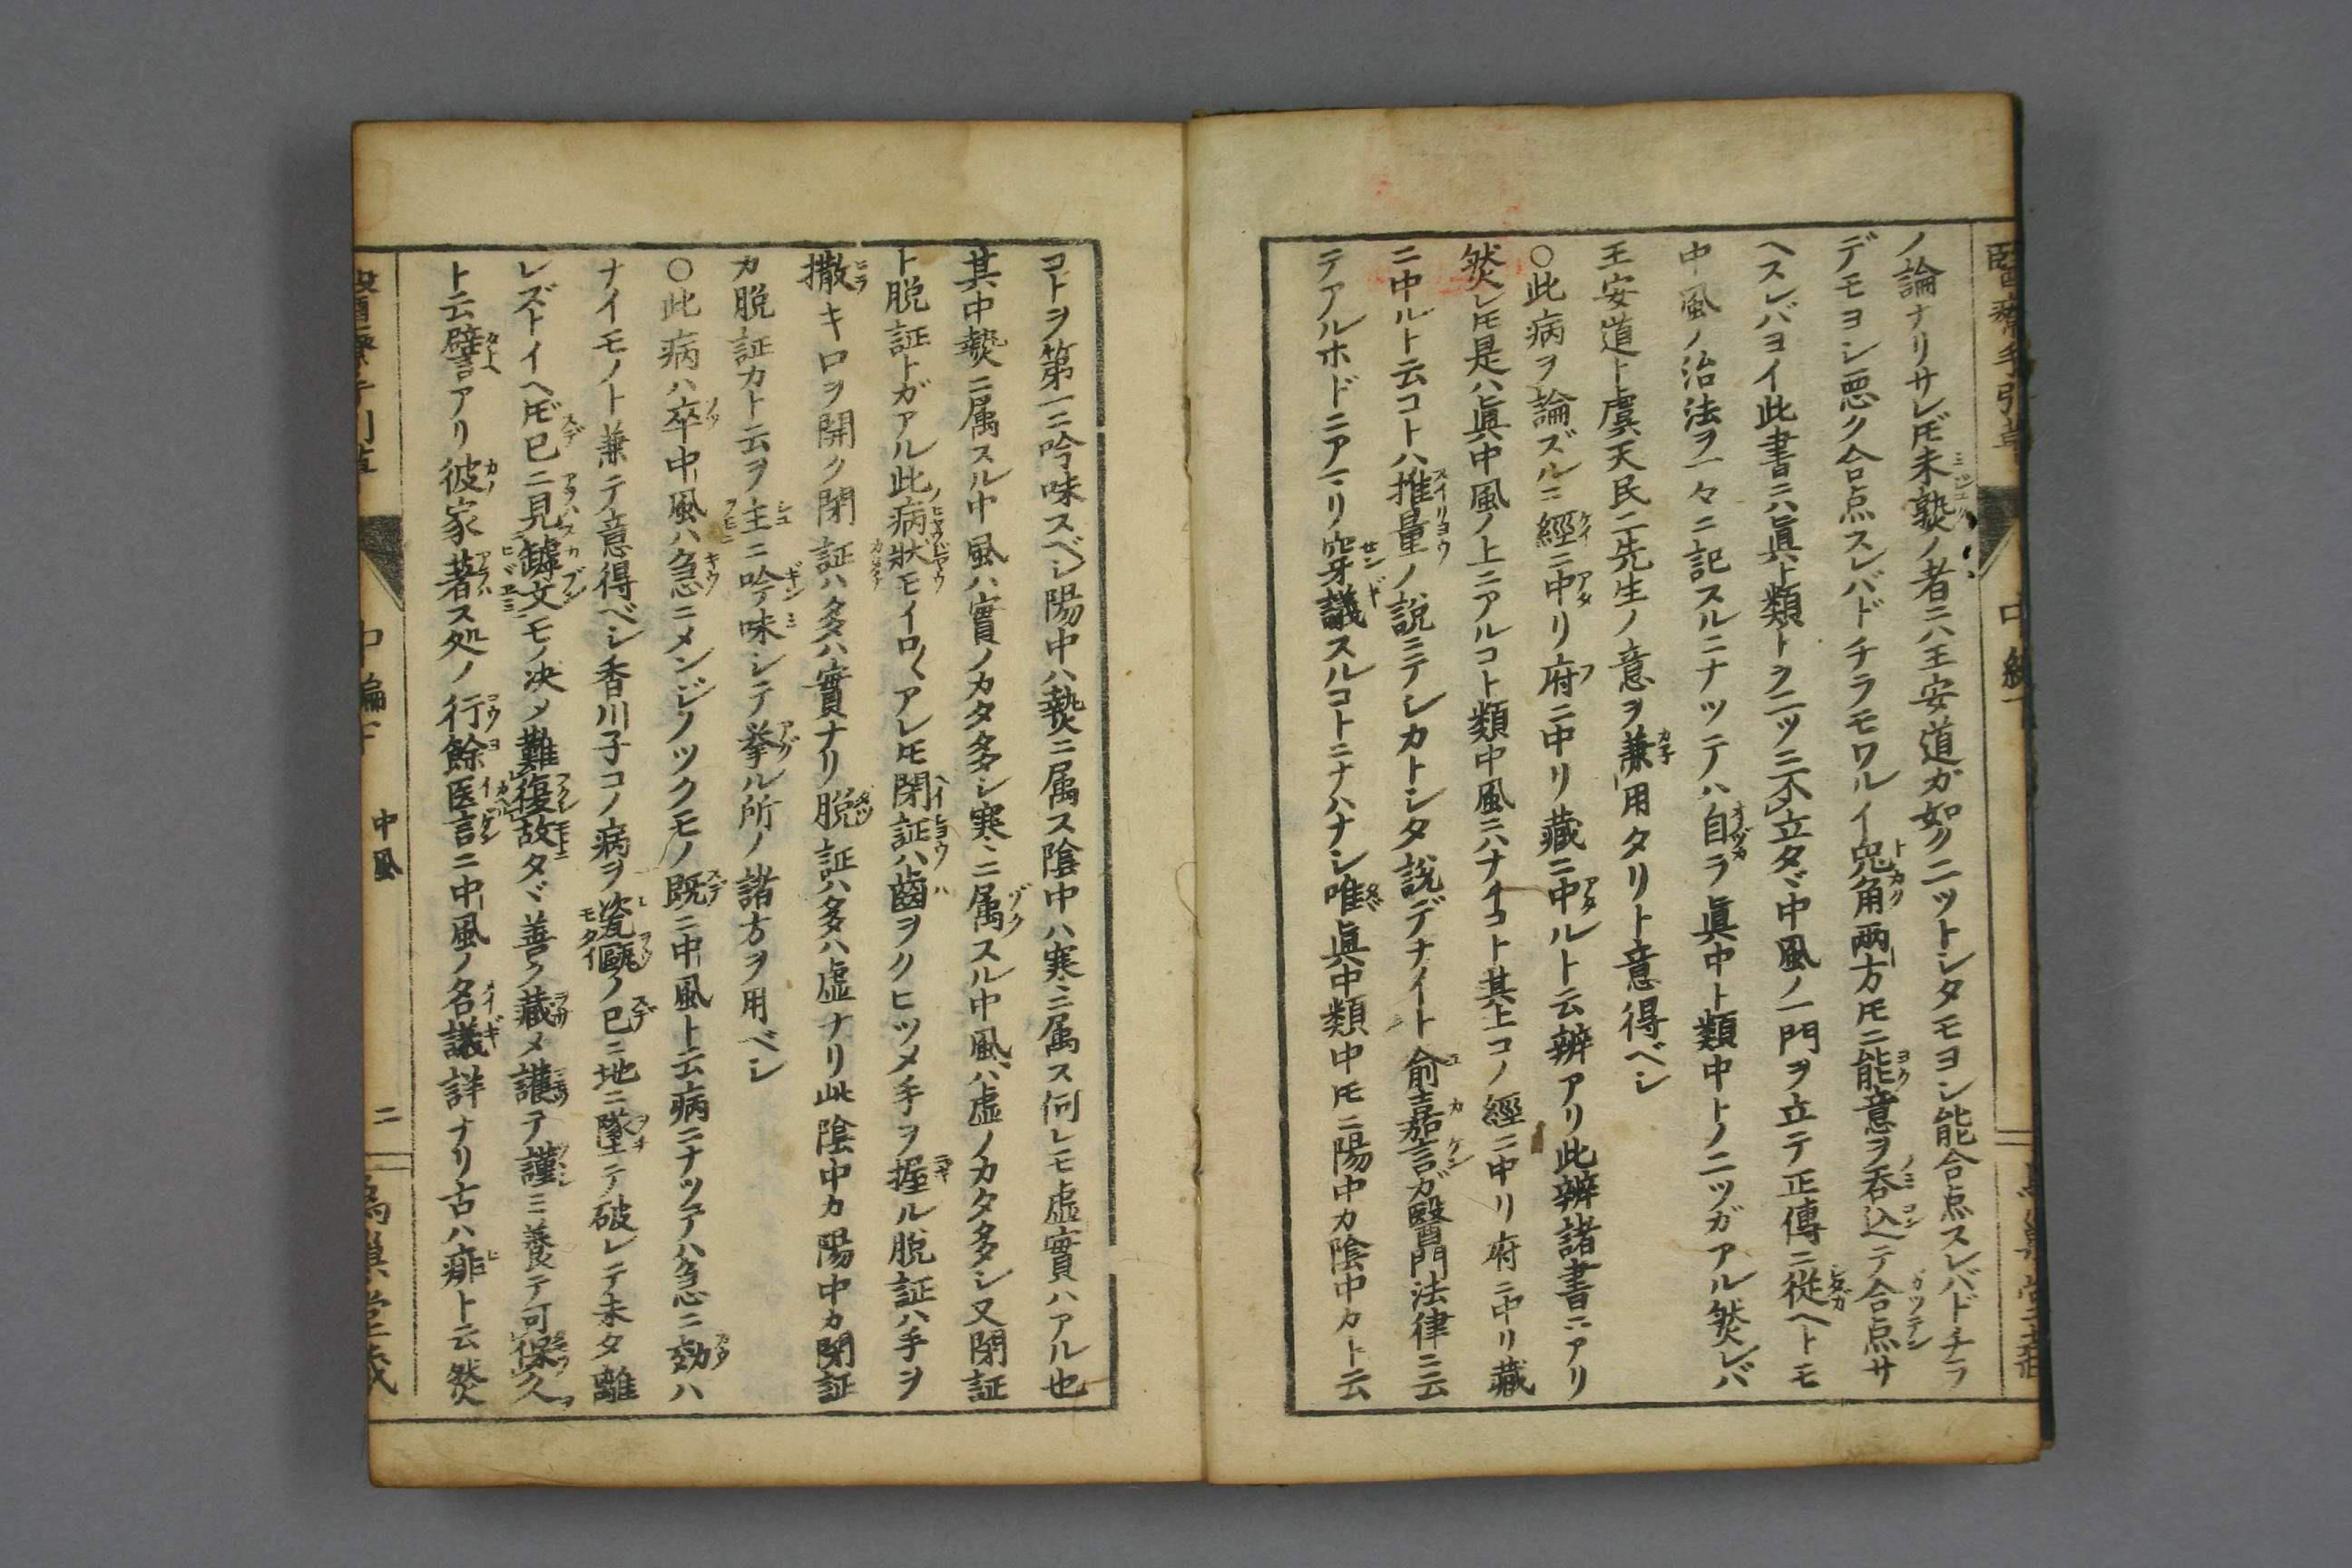 ノ論ナリサレ𪜈未熟ノ者ニハ王安道ガ如ク二ツトシタモヨシ能合点スレバドチラ
デモヨシ悪ク合点スレバドチラモワルイ兎角両方𪜈ニ能意ヲ呑込テ合点サ
ヘスレバヨイ此書ニハ眞ト類トヲ二ツニ不立タヾ中風ノ一門ヲ立テ正傳ニ従ヘトモ
中風ノ治法ヲ一々ニ記スルニナツテハ自ラ眞中ト類中トノ二ツガアル然レバ
王安道ト虞天民二先生ノ意ヲ兼用タリト意得ベシ
○此病ヲ論ズルニ經ニ中リ府ニ中リ藏ニ中ルト云辨アリ此辨諸書ニアリ
然レ𪜈是ハ眞中風ノ上ニアルコト類中風ニハナイコト其上コノ經ニ中リ府ニ中リ藏
ニ中ルト云コトハ推量ノ説ニテシカトシタ説デナイト俞嘉言ガ醫門法律ニ云
テアルホドニアマリ穿議スルコトニナハナシ唯眞中類中𪜈ニ陽中カ陰中カト云
コトヲ第一ニ吟味スベシ陽中ハ熱ニ属ス陰中ハ寒ニ属ス何レモ虚實ハアル也
其中熱ニ属スル中風ハ實ノカタ多シ寒ニ属スル中風ハ虚ノカタ多シ又閉証
ト脱証トガアル此病狀モイロ〱アレ𪜈閉証ハ齒ヲクヒツメ手ヲ握ル脱証ハ手ヲ
撒キ口ヲ開ク閉証ハ多ハ實ナリ脱証ハ多ハ虚ナリ此陰中カ陽中カ閉証
カ脱証カト云ヲ主ニ吟味シテ挙ル所ノ諸方ヲ用ベシ
○此病ハ卒中風ハ急ニメンジノツクモノ既ニ中風ト云病ニナツテハ急ニ効ハ
ナイモノト兼テ意得ベシ香川子コノ病ヲ瓷甌ノ已ニ地ニ墜テ破レテ未タ離
レズトイヘ𪜈已ニ見罅文モノ决メ難復故タヾ善ク藏メ護テ謹ミ養テ可保久
ト云譬アリ彼家著ス処ノ行餘医言ニ中風ノ名議詳ナリ古ハ痱ト云然
中編下 中風 二